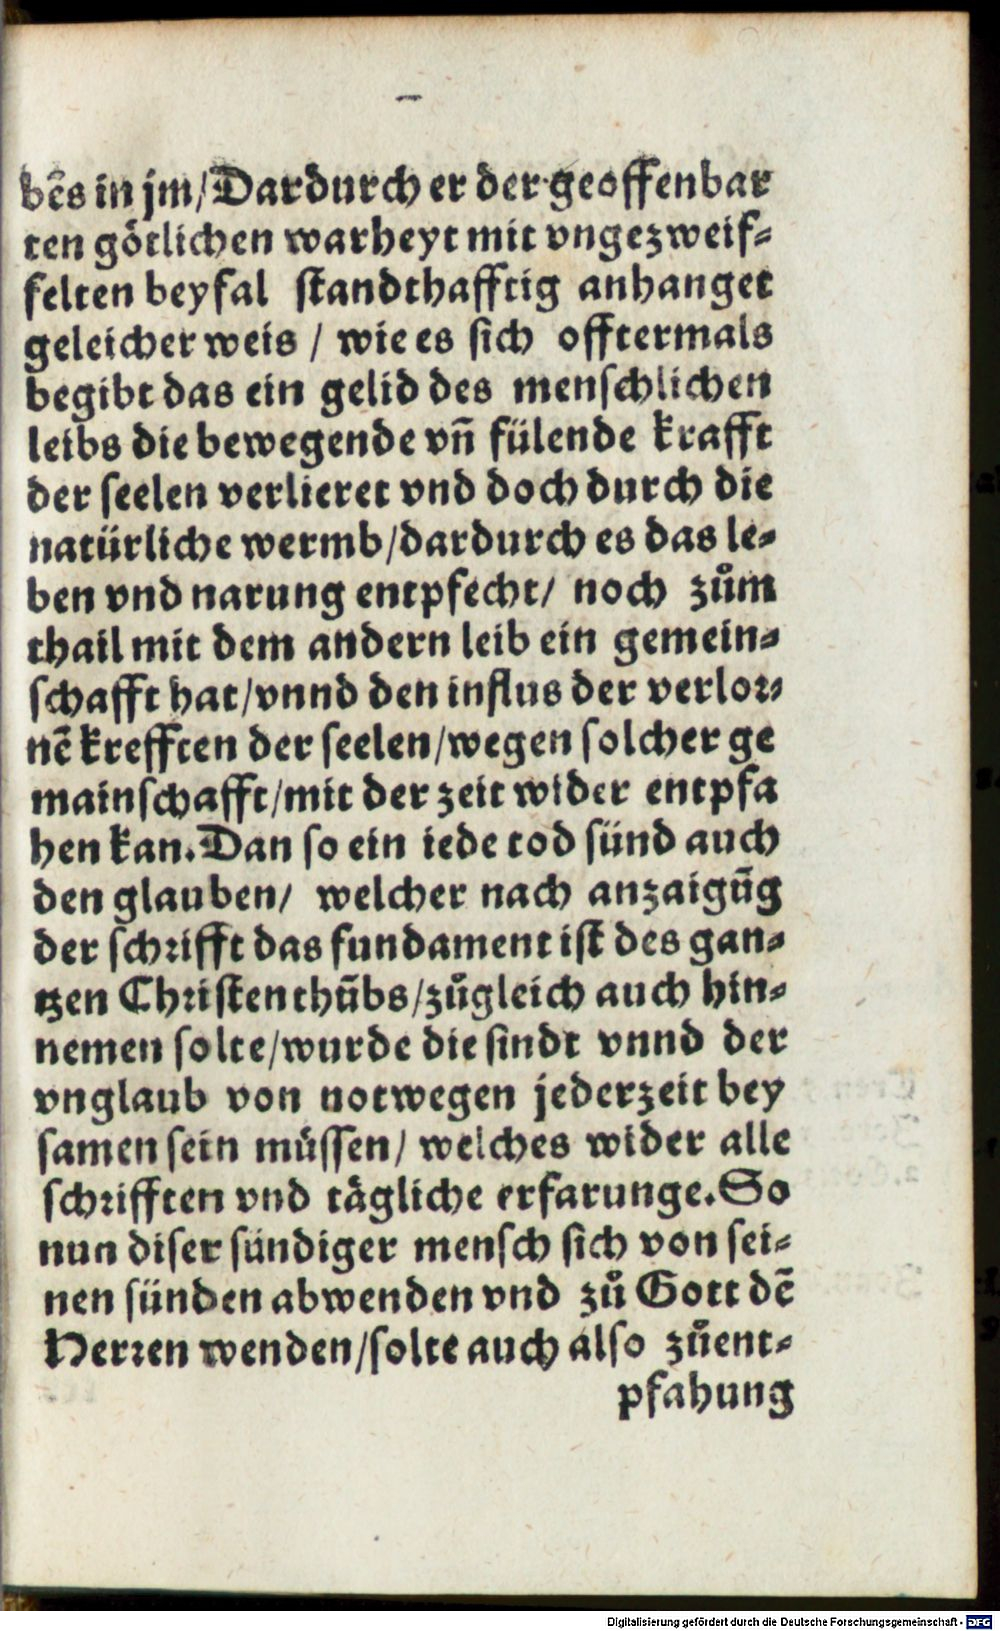 bẽs in jm/Dardurch er der geoffenbar
ten götlichen warheyt mit vngezweif⸗
felten beyfal standthafftig anhanget
geleicher weis / wie es sich offtermals
begibt das ein gelid des menschlichen
leibs die bewegende vñ fülende krafft
der seelen verlieret vnd doch durch die
natürliche wermb/dardurch es das le⸗
ben vnd narung entpfecht/ noch zům
thail mit dem andern leib ein gemein⸗
schafft hat/vnnd den influs der verlor⸗
nẽ krefften der seelen/wegen solcher ge
mainschafft/mit der zeit wider entpfa
hen kan.Dan so ein iede tod sünd auch
den glauben/ welcher nach anzaigũg
der schrifft das fundament ist des gan⸗
tzen Christenthũbs/zůgleich auch hin⸗
nemen solte/wurde die sindt vnnd der
vnglaub von notwegen jederzeit bey
samen sein müssen/ welches wider alle
schrifften vnd tägliche erfarunge.So
nun diser sündiger mensch sich von sei⸗
nen sünden abwenden vnd zů Gott dẽ
Herren wenden/solte auch also zůent⸗
pfahung
Digitalisierung gefördert durch die Deutsche Forschungsgemeinschaft - DFG